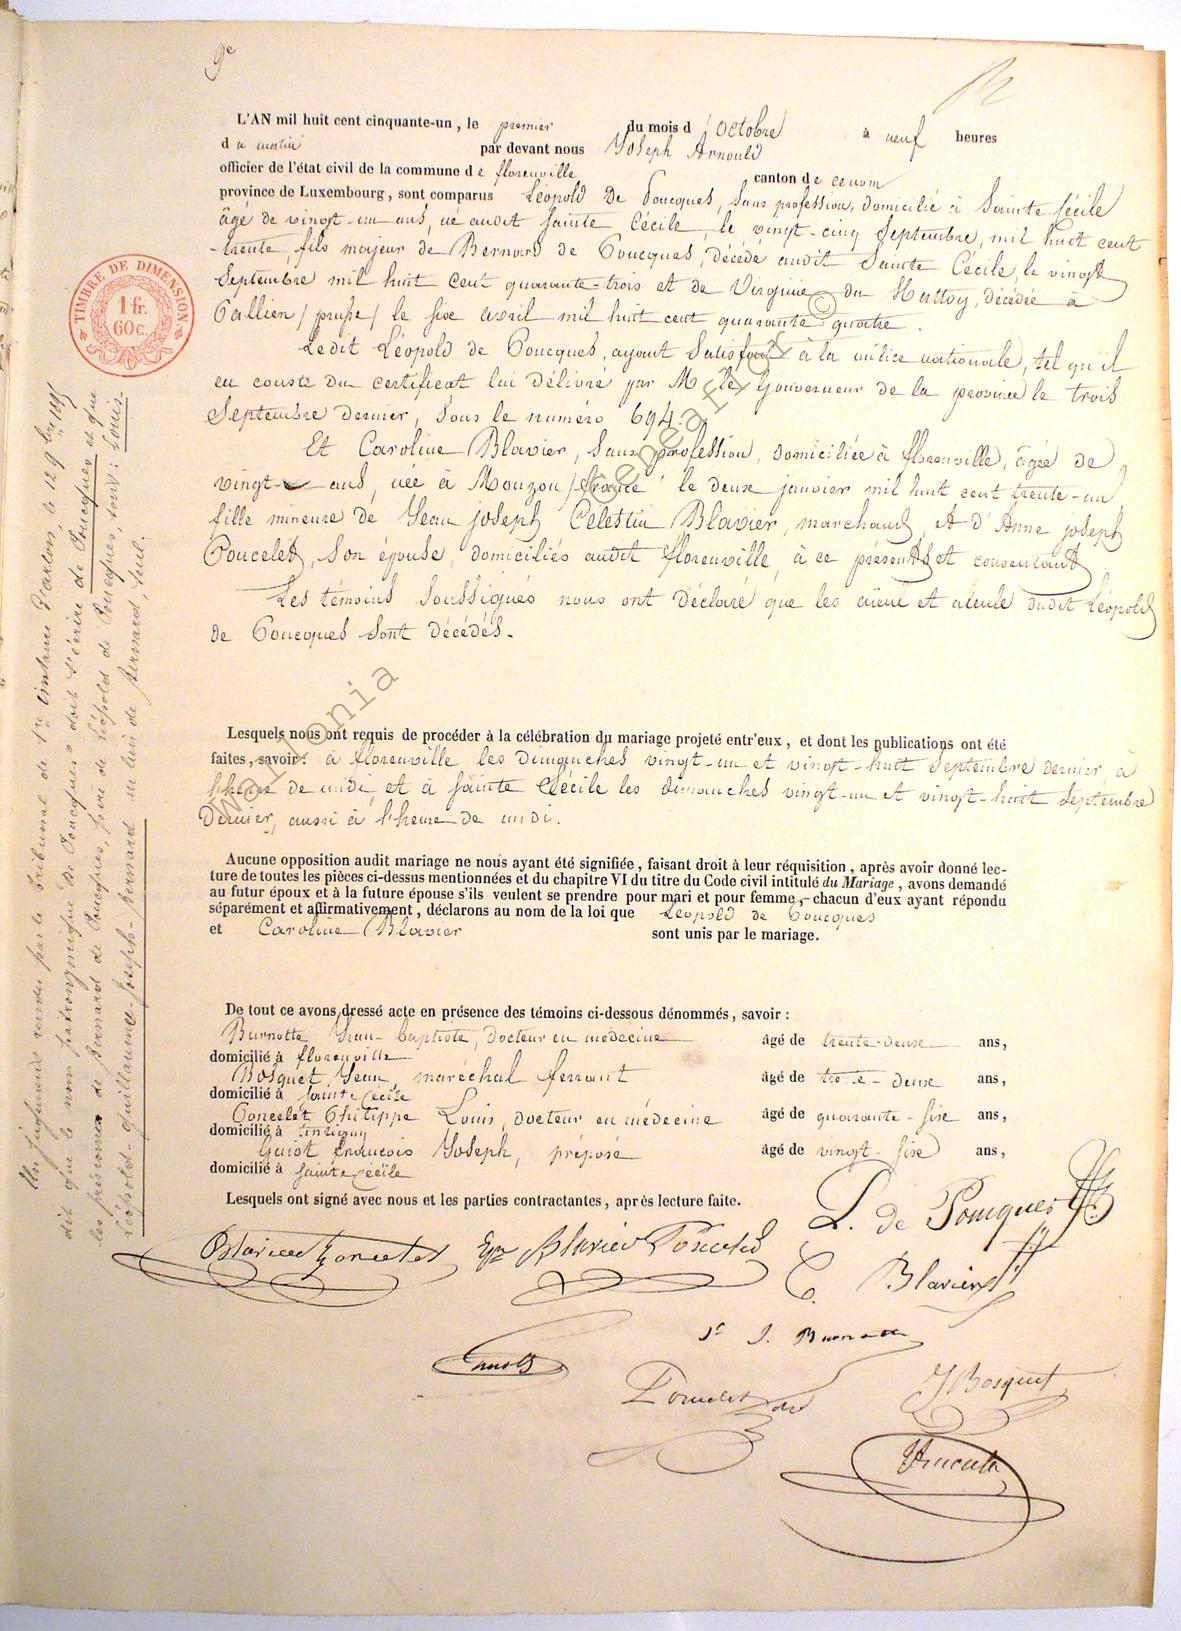 9e
L'AN mil huit cent cinquante-un, le premier du mois d'octobre à neuf heures
du matin par devant nous Joseph Arnould
officier de l'état civil de la commune de florenville canton de
province de Luxembourg, sont comparus Léopold De Poucques, sans profession, domicilié à Sainte Cécile
âgé de vingt-un ans, né audit Sainte Cécile, le vingt-cinq Septembre, mil huit cent
trente, fils majeur de Bernard de Poucques, décédé audit Sainte Cécile, le vingt
Septembre mil huit cent quarante-trois et de Virginie du Hattoy, décédée à
Pallien / prusse / le six avril mil huit cent quarante-quatre.
Ledit Léopold de Poucques, ayant satisfait à la milice nationale, tel qu'il
en conste du certificat lui délivré par M le Gouverneur de la province le trois
Septembre dernier, sous le numéro 694.
Et Caroline Blavier, sans profession, domiciliée à florenville, âgée de
vingt ans, née à Mouzon / france / le deux janvier mil huit cent trente-un
fille mineure de Jean joseph Célestin Blavier, marchand et d'Anne joseph
Poncelet, son épouse, domiciliés audit florenville, à ce présents et consentant
Les témoins soussignés nous ont déclaré que les aïeul et aïeule dudit Léopold
de Poucques sont décédés.
Lesquels nous ont requis de procéder à la célébration du mariage projeté entr'eux, et dont les publications ont été
faites, savoir: à florenville les dimanches vingt-un et vingt-huit Septembre dernier à
l'heure de midi, et à Sainte Cécile les dimanches vingt-un et vingt-huit Septembre
dernier, aussi à l'heure de midi.
Aucune opposition audit mariage ne nous ayant été signifiée, faisant droit à leur réquisition, après avoir donné lec-
ture de toutes les pièces ci-dessus mentionnées et du chapitre VI du titre du Code civil intitulé du Mariage, avons demandé
au futur époux et à la future épouse s'ils veulent se prendre pour mari et pour femme,- chacun d'eux ayant répondu
séparément et affirmativement, déclarons au nom de la loi que Léopold de Poucques
et Caroline Blavier sont unis par le mariage.
De tout ce avons dressé acte en présence des témoins ci-dessous dénommés, savoir:
Burnotte Jean-baptiste, docteur en médecine âgé de trente-deux ans,
domicilié à florenville
Bosquet Jean, maréchal ferrant âgé de trente-deux ans,
domicilié à Sainte Cécile
Poncelet Philippe Louis, docteur en médecine âgé de quarante-six ans,
domicilié à tintigny
Guiot françois Joseph, préposé âgé de vingt-six ans,
domicilié à Sainte Cécile
Lesquels ont signé avec nous et les parties contractantes, après lecture faite.
L. de Poucques
Blavier Poncelet
C. Blavier
J. Burnotte
Poncelet
J Bosquet
TIMBRE DE DIMENSION
1 fr.
60 c.
Un jugement rendu par le tribunal de 1re instance d'Arlon, le 12 9bre 1891
dit que le nom patronymique de Poucques doit s'écrire de Poucques et que
les prénoms de Bernard de Poucques, père de Léopold de Poucques, sont: Louis-
Léopold-Guillaume-Joseph-Bernard au lieu de Bernard, seul.
wallonia © geneafrance